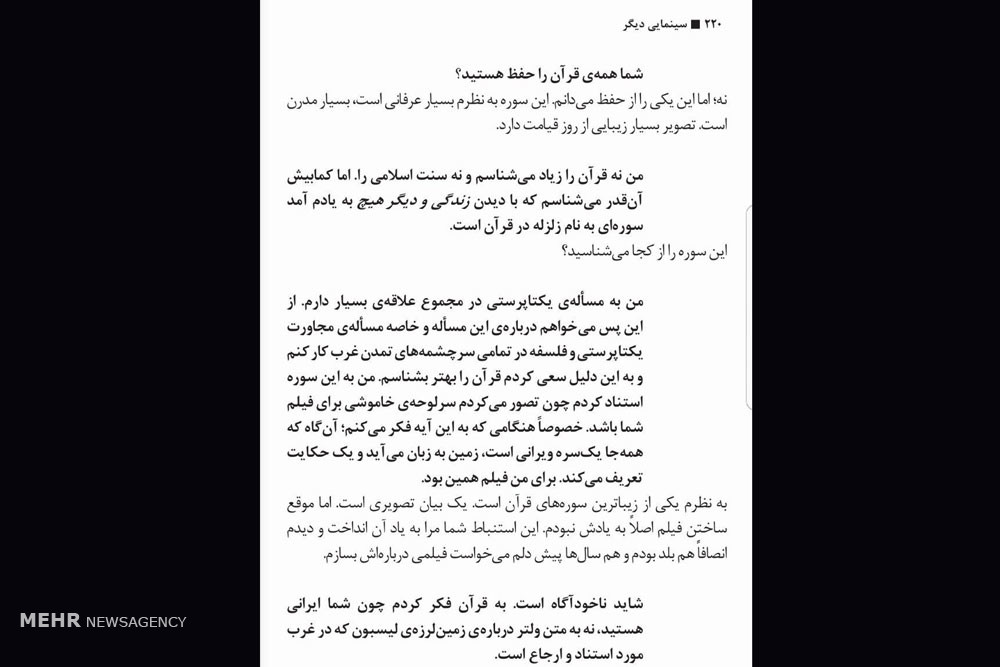 ۲۲۰ ■ سینمایی دیگر
شما همه‌ی قرآن را حفظ هستید؟
نه؛ اما این یکی را از حفظ می‌دانم. این سوره به نظرم بسیار عرفانی است، بسیار مدرن
است. تصویر بسیار زیبایی از روز قیامت دارد.
من نه قرآن را زیاد می‌شناسم و نه سنت اسلامی را. اما کمابیش
آن‌قدر می‌شناسم که با دیدن زندگی و دیگر هیچ به یادم آمد
سوره‌ای به نام زلزله در قرآن است.
این سوره را از کجا می‌شناسید؟
من به مسأله‌ی یکتاپرستی در مجموع علاقه‌ی بسیار دارم. از
این پس می‌خواهم درباره‌ی این مسأله و خاصه مسأله‌ی مجاورت
یکتاپرستی و فلسفه در تمامی سرچشمه‌های تمدن غرب کار کنم
و به این دلیل سعی کردم قرآن را بهتر بشناسم. من به این سوره
استناد کردم چون تصور می‌کردم سرلوحه‌ی خاموشی برای فیلم
شما باشد. خصوصاً هنگامی که به این آیه فکر می‌کنم؛ آن‌گاه که
همه‌جا یک‌سره ویرانی است، زمین به زبان می‌آید و یک حکایت
تعریف می‌کند. برای من فیلم همین بود.
به نظرم یکی از زیباترین سوره‌های قرآن است. یک بیان تصویری است. اما موقع
ساختن فیلم اصلاً به یادش نبودم. این استنباط شما مرا به یاد آن انداخت و دیدم
انصافاً هم بلد بودم و هم سال‌ها پیش دلم می‌خواست فیلمی درباره‌اش بسازم.
شاید ناخودآگاه است. به قرآن فکر کردم چون شما ایرانی
هستید، نه به متن ولتر درباره‌ی زمین‌لرزه‌ی لیسبون که در غرب
مورد استناد و ارجاع است.
MEHR NEWSAGENCY